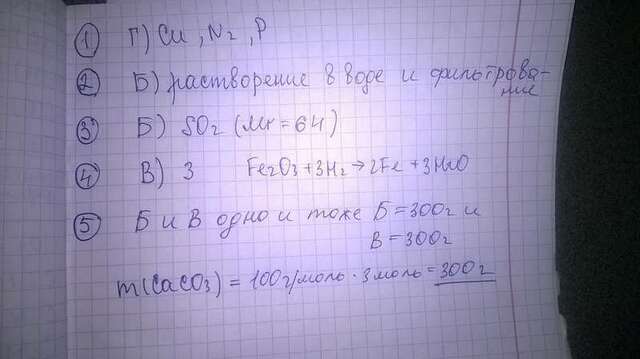 1 Г) Cu, N2, P
2 Б) растворение в воде и фильтрова-
ние
3 Б) SO2 (Mr = 64)
4 В) 3 Fe2O3 + 3H2 → 2Fe + 3H2O
5 Б и В одно и тоже Б = 300г и
В = 300г
m(CaCO3) = 100г/моль · 3моль = 300г